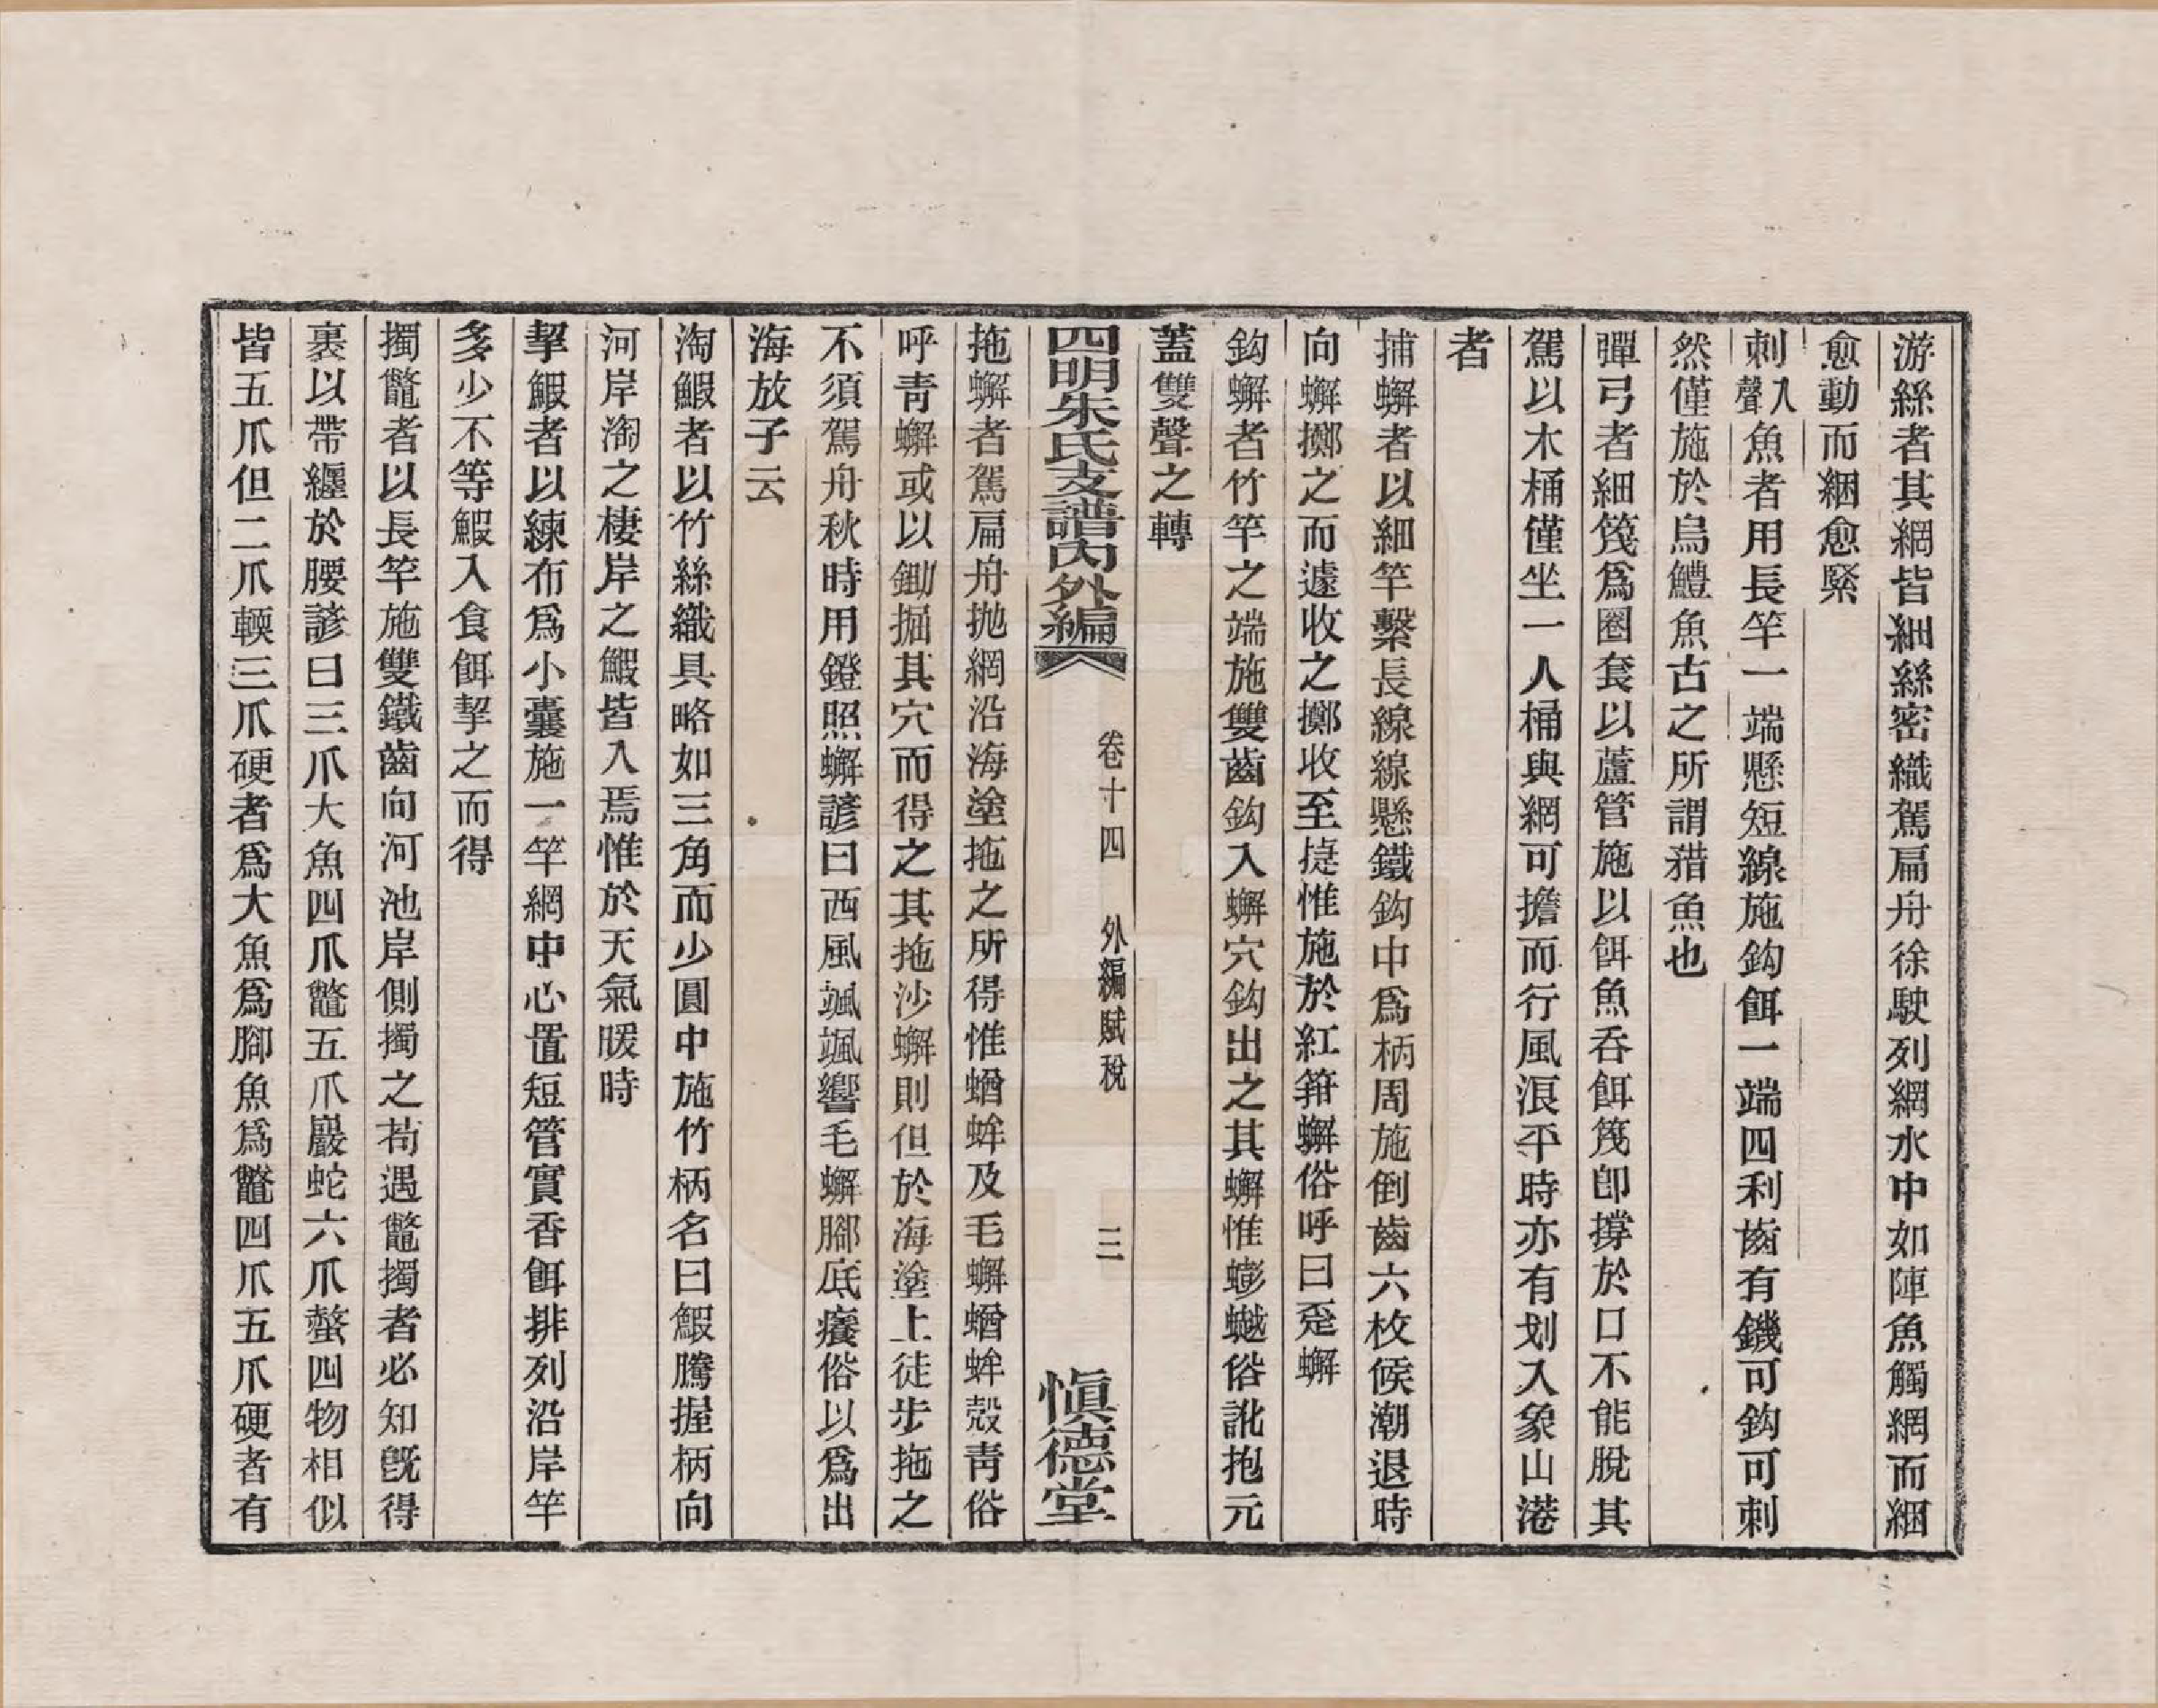 游絲者其網皆細絲密織駕扁舟徐駛列網水中如陣魚觸網而綑
愈動而綑愈緊
刺入聲魚者用長竿一端懸短線施鈎餌一端四利齒有鐖可鈎可刺
然僅施於烏鱧魚古之所謂矠魚也
彈弓者細篾爲圈套以蘆管施以餌魚吞餌篾卽撐於口不能脫其
駕以木桶僅坐一人桶與網可擔而行風浪平時亦有划入象山港
者
捕蠏者以細竿繫長線線懸鐵鈎中爲柄周施倒齒六枚候潮退時
向蠏擲之而遽收之擲收至捷惟施於紅箝蠏俗呼曰跫蠏
鈎蠏者竹竿之端施雙齒鈎入蠏穴鈎出之其蠏惟蟛蚏俗訛抱元
蓋雙聲之轉
四明朱氏支譜內外編 卷十四 外編賦稅 三 愼德堂
拖蠏者駕扁舟抛網沿海塗拖之所得惟蝤蛑及毛蠏蝤蛑殼靑俗
呼靑蠏或以鋤掘其穴而得之其拖沙蠏則但於海塗上徒步拖之
不須駕舟秋時用鐙照蠏諺曰西風颯颯響毛蠏腳底癢俗以爲出
海放子云
淘鰕者以竹絲織具略如三角而少圓中施竹柄名曰鰕騰握柄向
河岸淘之棲岸之鰕皆入焉惟於天氣暖時
挈鰕者以練布爲小囊施一竿網中心置短管實香餌排列沿岸竿
多少不等鰕入食餌挈之而得
擉鼈者以長竿施雙鐵齒向河池岸側擉之苟遇鼈擉者必知旣得
裹以帶纏於腰諺曰三爪大魚四爪鼈五爪巖蛇六爪螯四物相似
皆五爪但二爪輭三爪硬者爲大魚爲腳魚爲鼈四爪五爪硬者有